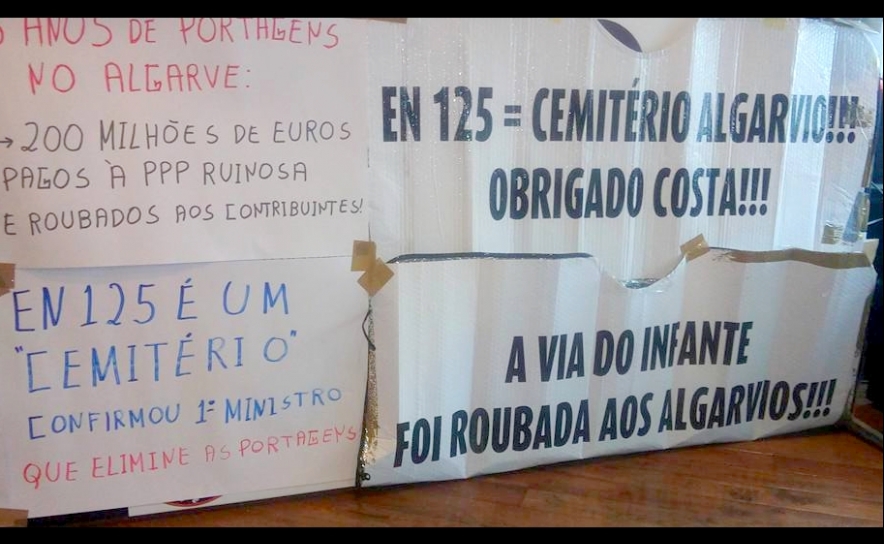 ANOS DE PORTAGENS
NO ALGARVE:
→ 200 MILHÕES DE EUROS
PAGOS À PPP RUINOSA
E ROUBADOS AOS CONTRIBUINTES!
EN 125 É UM
"CEMITÉRIO"
CONFIRMOU 1º MINISTRO
QUE ELIMINE AS PORTAGENS
EN 125 = CEMITÉRIO ALGARVIO!!!
OBRIGADO COSTA!!!
A VIA DO INFANTE
FOI ROUBADA AOS ALGARVIOS!!!